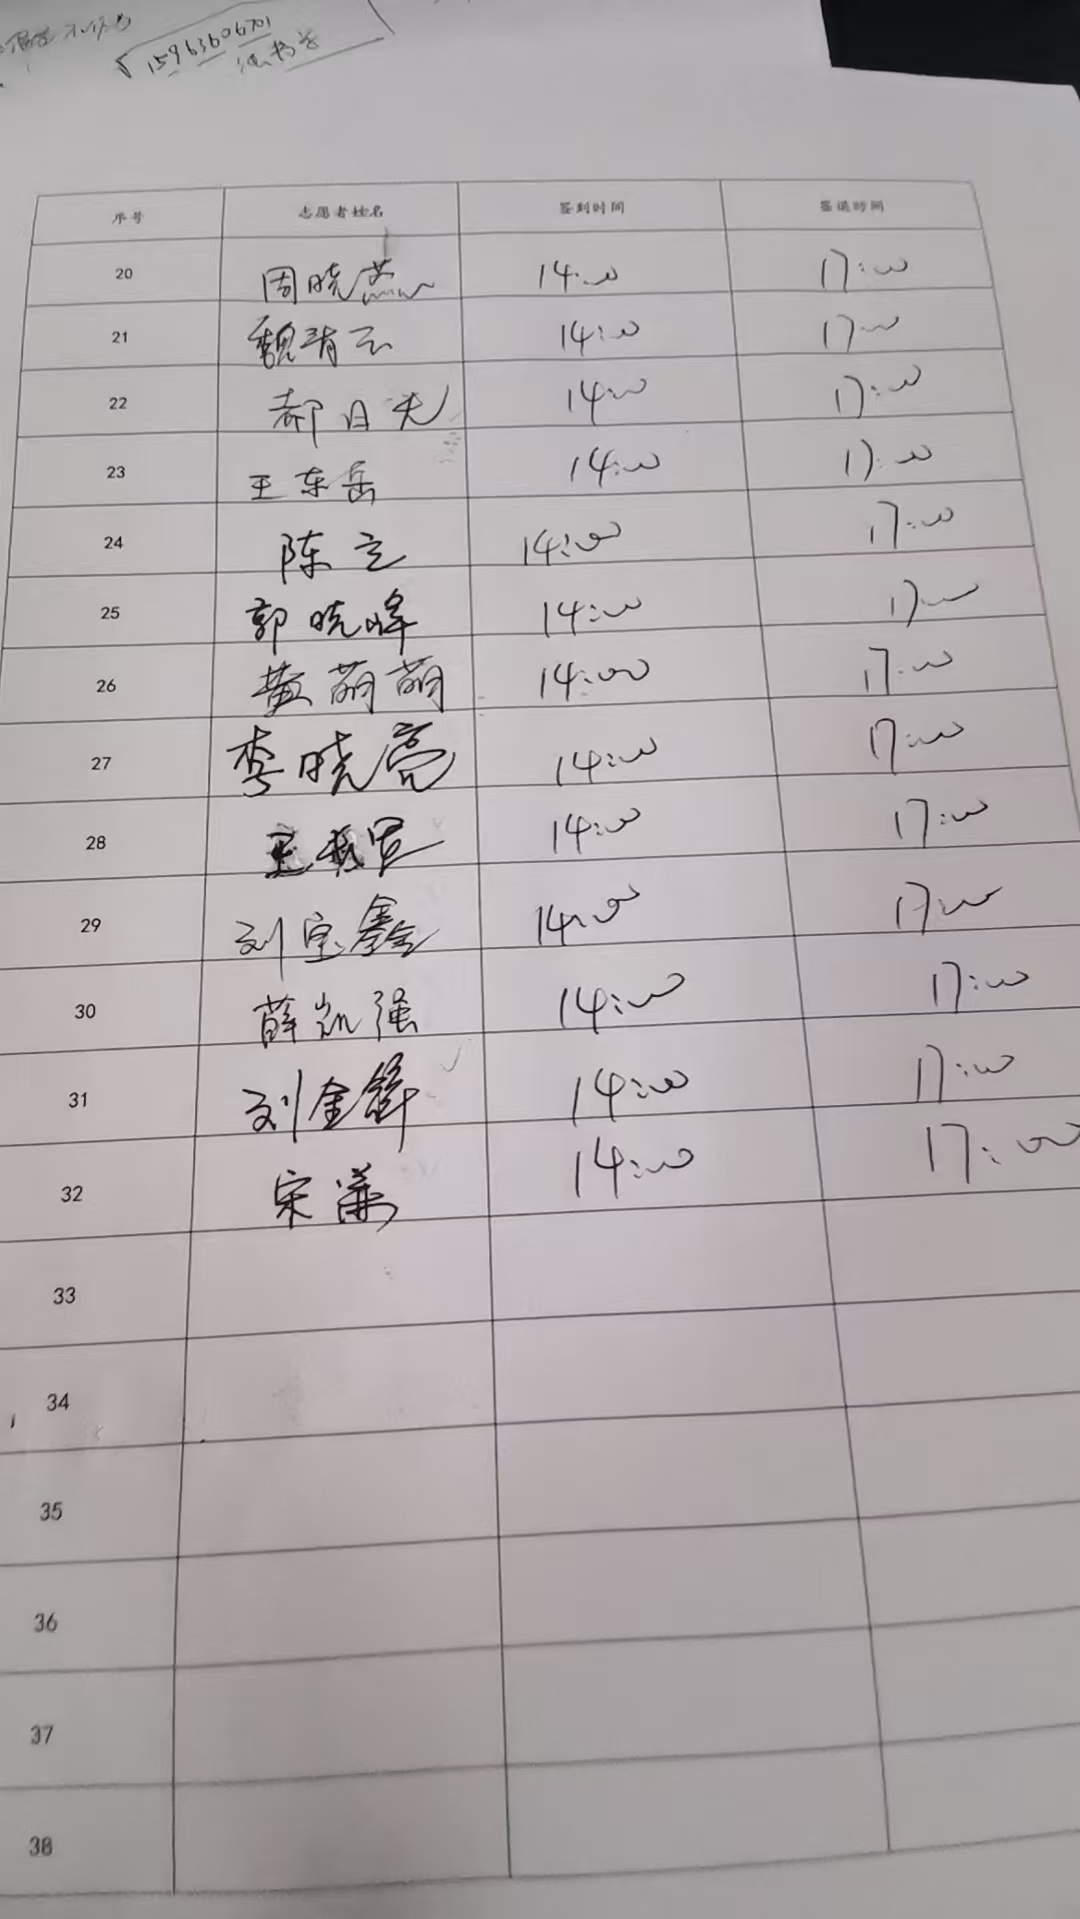 15963606701
序号 志愿者姓名 签到时间 签退时间
20 周晓燕 14:00 17:00
21 魏清云 14:00 17:00
22 郝日天 14:00 17:00
23 王东岳 14:00 17:00
24 陈立 14:00 17:00
25 郭晓峰 14:00 17:00
26 黄萌萌 14:00 17:00
27 李晓亮 14:00 17:00
28 王 14:00 17:00
29 刘宝鑫 14:00 17:00
30 薛凯强 14:00 17:00
31 刘金锋 14:00 17:00
32 宋潇 14:00 17:00
33
34
35
36
37
38